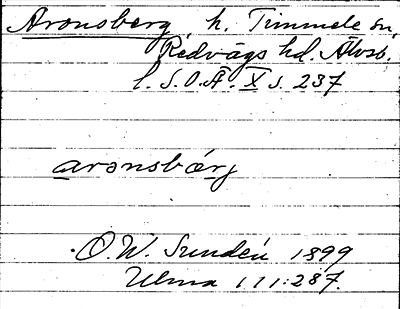 Aronsberg, h. Timmele sn,
Redvägs hd. Älvsb.
l. S.O.Ä. X s. 237
aronsbærj
O.W. Sundén 1899
Ulma 111:287.